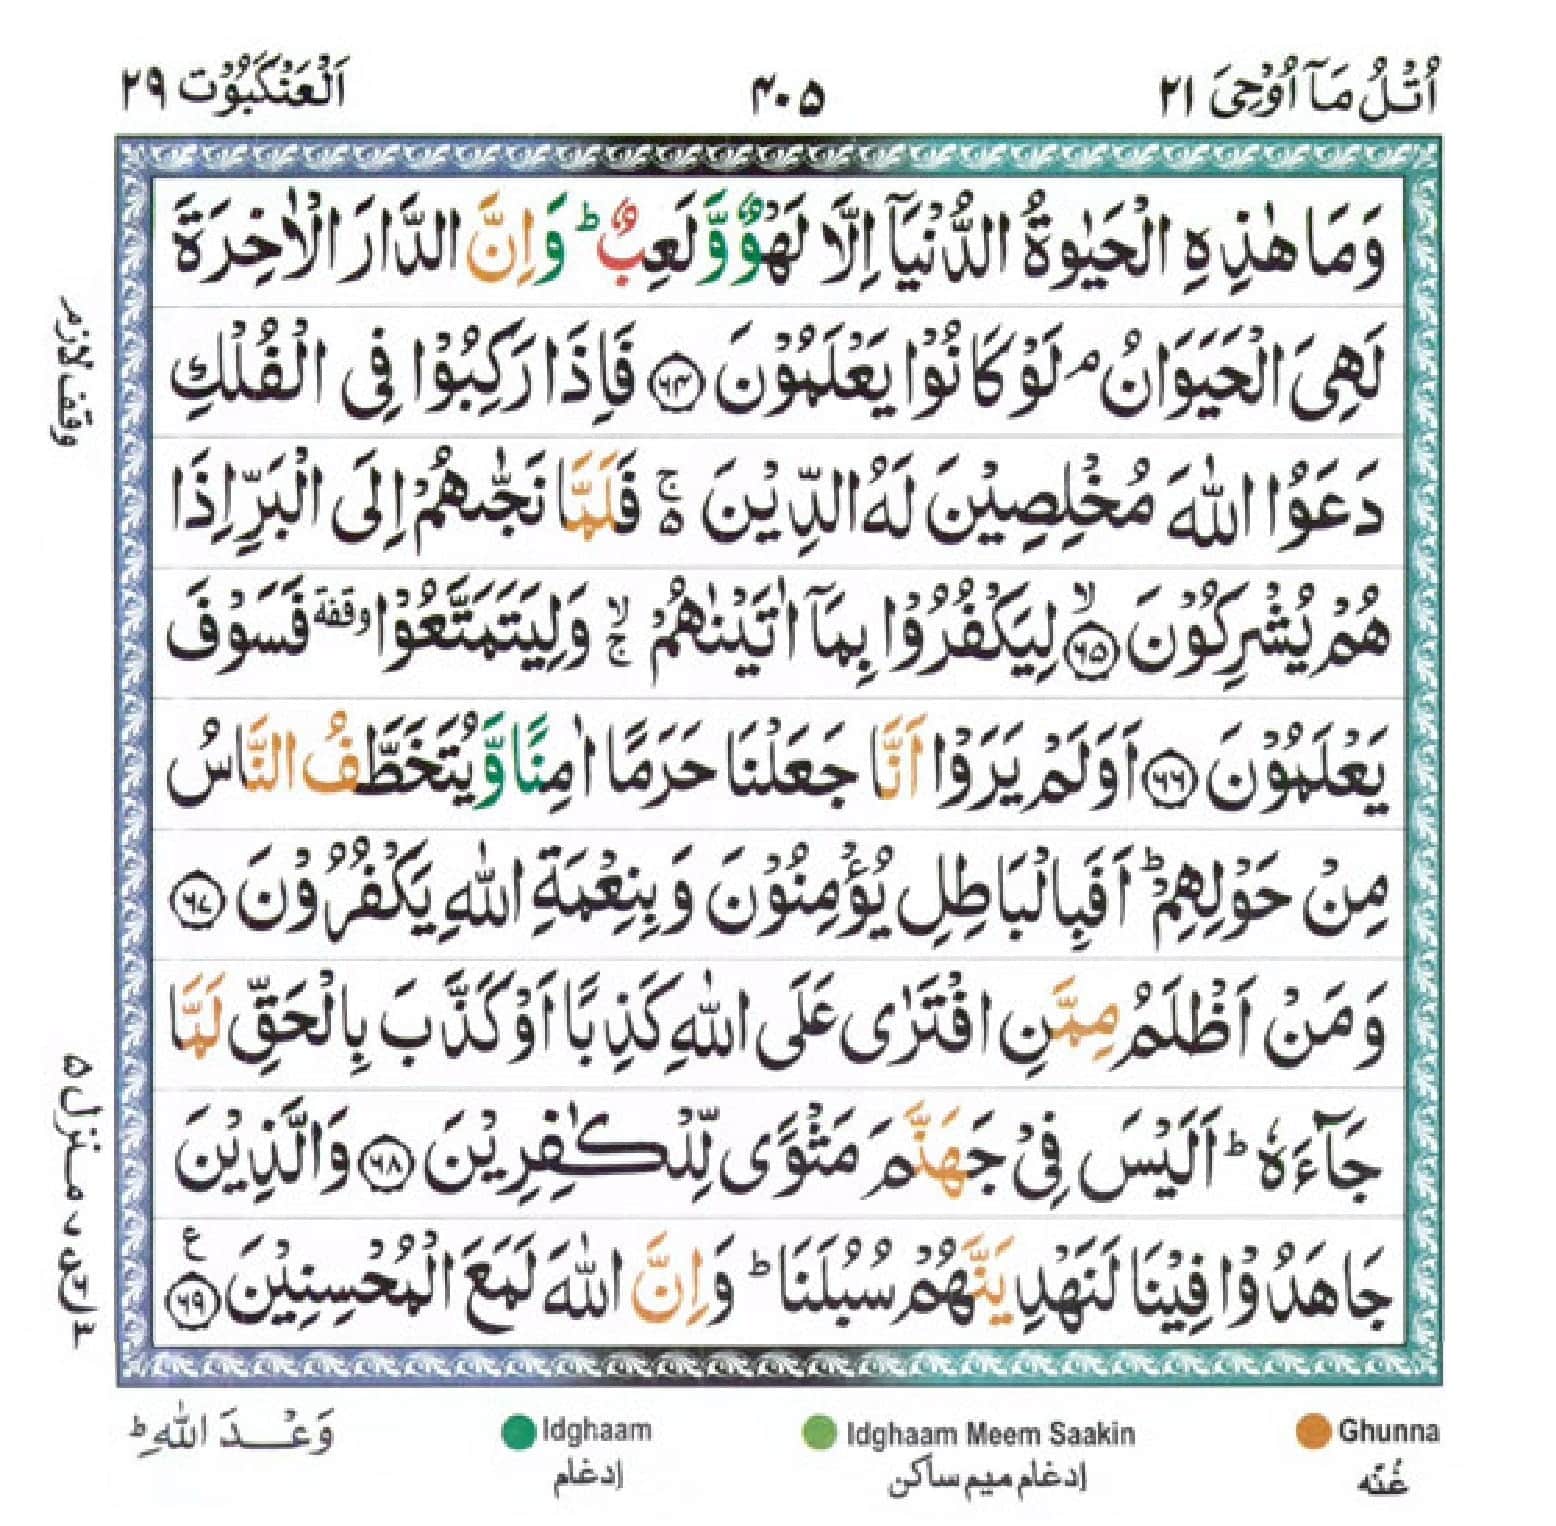 اُتْلُ مَاۤ اُوْحِیَ ۲۱
۴۰۵
اَلْعَنْكَبُوْت ۲۹
وَمَا هٰذِهِ الْحَیٰوةُ الدُّنْیَاۤ اِلَّا لَهْوٌ وَّلَعِبٌ ؕ وَاِنَّ الدَّارَ الْاٰخِرَةَ
لَهِیَ الْحَیَوَانُ ۘ لَوْ كَانُوْا یَعْلَمُوْنَ ۶۴ فَاِذَا رَكِبُوْا فِی الْفُلْكِ
دَعَوُا اللّٰهَ مُخْلِصِیْنَ لَهُ الدِّیْنَ ۚ۬ فَلَمَّا نَجّٰىهُمْ اِلَی الْبَرِّ اِذَا
هُمْ یُشْرِكُوْنَ ۙ۶۵ لِیَكْفُرُوْا بِمَاۤ اٰتَیْنٰهُمْ ۙۚ وَلِیَتَمَتَّعُوْا وقفة فَسَوْفَ
یَعْلَمُوْنَ ۶۶ اَوَلَمْ یَرَوْا اَنَّا جَعَلْنَا حَرَمًا اٰمِنًا وَّیُتَخَطَّفُ النَّاسُ
مِنْ حَوْلِهِمْ ؕ اَفَبِالْبَاطِلِ یُؤْمِنُوْنَ وَبِنِعْمَةِ اللّٰهِ یَكْفُرُوْنَ ۶۷
وَمَنْ اَظْلَمُ مِمَّنِ افْتَرٰی عَلَی اللّٰهِ كَذِبًا اَوْ كَذَّبَ بِالْحَقِّ لَمَّا
جَآءَهٗ ؕ اَلَیْسَ فِیْ جَهَنَّمَ مَثْوًی لِّلْكٰفِرِیْنَ ۶۸ وَالَّذِیْنَ
جَاهَدُوْا فِیْنَا لَنَهْدِیَنَّهُمْ سُبُلَنَا ؕ وَاِنَّ اللّٰهَ لَمَعَ الْمُحْسِنِیْنَ ۶۹ ع
وقف لازم
منزل ۵
Ghunna
غُنّه
Idghaam Meem Saakin
إدغام میم ساکن
Idghaam
إدغام
وَعْدَ اللّٰهِ ؕ